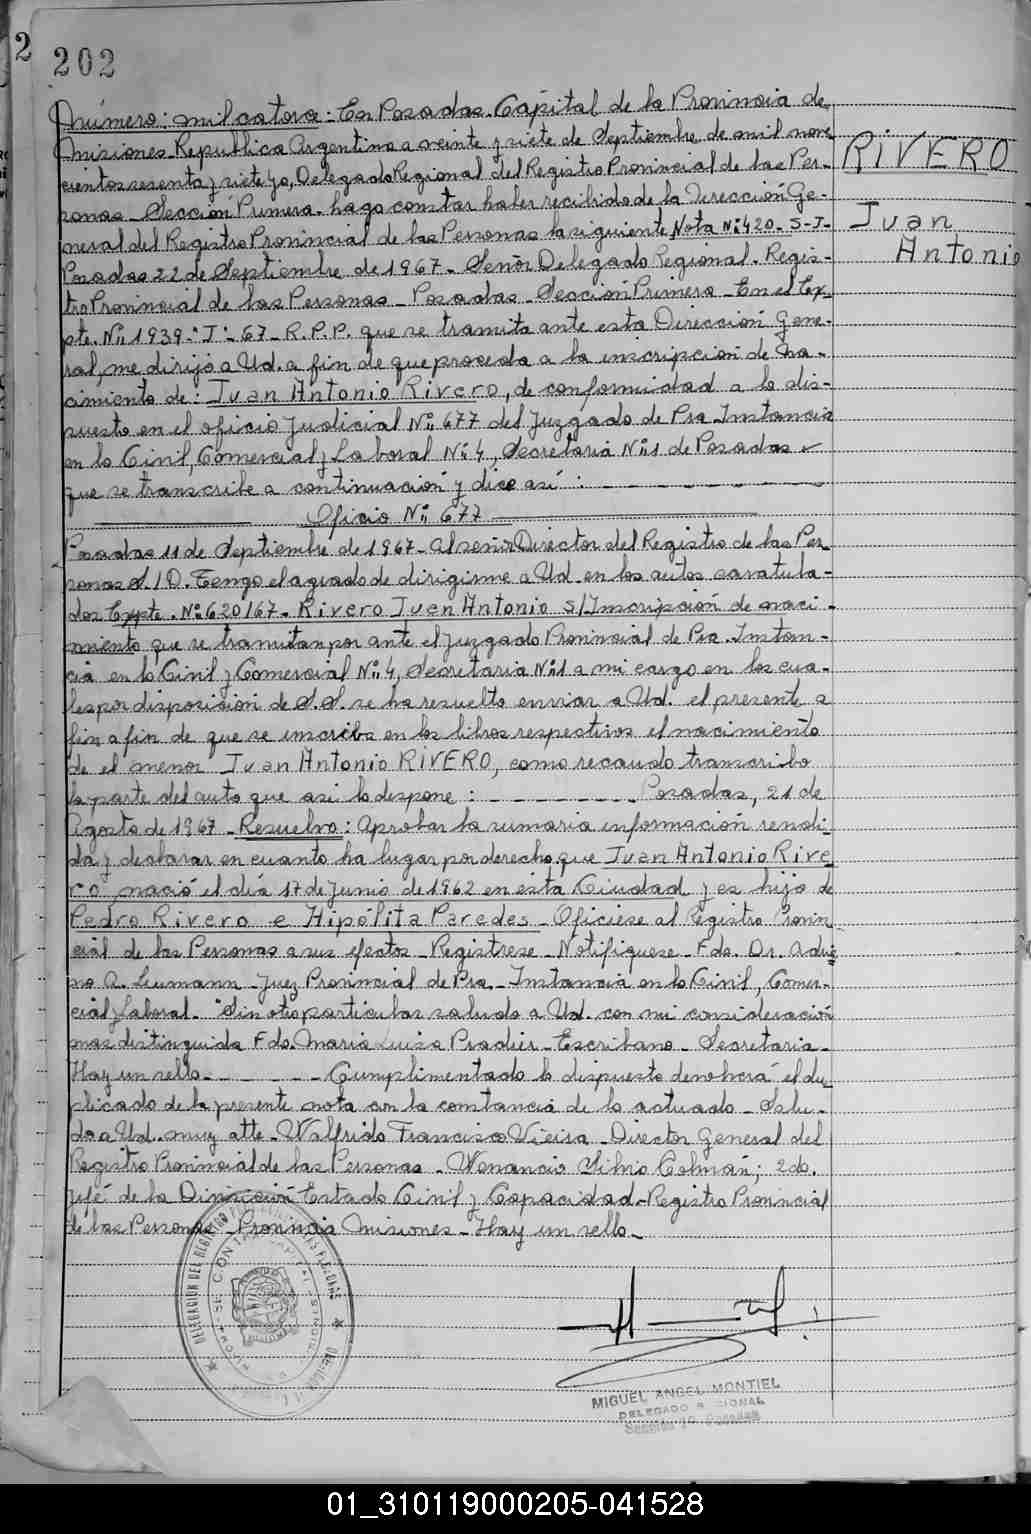 2
202
Número: mil catorce: En Posadas, Capital de la Provincia de
Misiones, Republica Argentina a veinte y siete de Septiembre de mil nove
cientos sesenta y siete yo, Delegado Regional del Registro Provincial de las Per-
sonas - Sección Primera - hago constar haber recibido de la Dirección Ge-
neral del Registro Provincial de las Personas la siguiente Nota Nº: 420 - S-J-
Posadas 22 de Septiembre de 1967 - Señor Delegado Regional - Regis-
tro Provincial de las Personas - Posadas - Sección Primera - En el Ex-
pte. Nº: 1939 - I - 67 - R.P.P. que se tramita ante esta Dirección Gene-
ral, me dirijo a Ud. a fin de que proceda a la inscripción de na-
cimiento de: Juan Antonio Rivero, de conformidad a lo dis-
puesto en el oficio Judicial Nº: 677 del Juzgado de Pra Instancia
en lo Civil, Comercial y Laboral Nº: 4, Secretaria Nº: 1 de Posadas -
que se transcribe a continuación y dice así : - - - - -
Oficio Nº: 677
Posadas 11 de Septiembre de 1967 - Al señor Director del Registro de las Per-
sonas S/D. Tengo el agrado de dirigirme a Ud. en los autos caratula-
dos Expte. Nº: 620/67 - Rivero Juan Antonio S/Inscripción de naci-
miento que se tramitan por ante el Juzgado Provincial de Pra. Instan-
cia en lo Civil y Comercial Nº: 4, Secretaria Nº: 1 a mi cargo en los cua-
les por disposición de S.S. se ha resuelto enviar a Ud. el presente a
fin a fin de que se inscriba en los libros respectivos el nacimiento
de el menor Juan Antonio RIVERO, como recaudo transcribo
la parte del auto que asi lo dispone : - - - - - Posadas, 21 de
Agosto de 1967 - Resuelvo: Aprobar la sumaria información rendi-
da y declarar en cuanto ha lugar por derecho que Juan Antonio Rive
ro nació el día 17 de Junio de 1962 en esta Ciudad y es hijo de
Pedro Rivero e Hipólita Paredes - Oficiese al Registro Provin
cial de las Personas a sus efectos - Registrese - Notifiquese - Fdo. Dr. Adria
no A. Leumann - Juez Provincial de Pra. Instancia en lo Civil, Comer-
cial y Laboral - Sin otro particular saludo a Ud. con mi consideración
mas distinguida Fdo. Maria Luisa Pradier - Escribano - Secretaria -
Hay un sello - - - - - Cumplimentado lo dispuesto devolverá el du-
plicado de la presente nota con la constancia de lo actuado - Salu-
do a Ud. muy atte - Walfrido Francisco Vieira - Director General del
Registro Provincial de las Personas - Wenancio Silvio Colmán; 2do.
Jefe de la División Estado Civil y Capacidad - Registro Provincial
de las Personas - Provincia Misiones - Hay un sello -
RIVERO
Juan
Antonio
MIGUEL ANGEL MONTIEL
DELEGADO REGIONAL
Sección 1ª Posadas
01_310119000205-041528